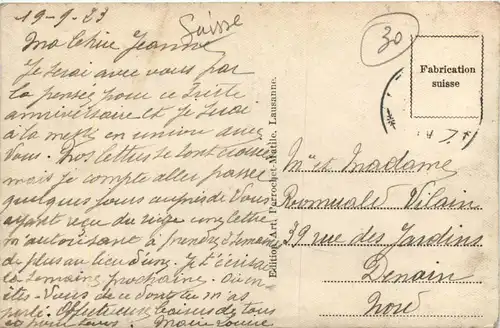 19-9-23
Suisse
30
Ma Chère Jeanne
Je serai avec vous par
la pensée pour ce triste
anniversaire et je serai
à la messe en union avec
Vous. Nos lettres se sont croisées
mais je compte aller passer
quelques jours auprès de Vous
ayant reçu du siège une lettre
m'autorisant à prendre semaines
de plus au lieu d'une. Je t'écrirai
la semaine prochaine. Où en
êtes-Vous de ce dont tu m'as
parlé. Affectueux baisers de tous
et pour tous. Marie Louise
Edition Art. Perrochet-Matile, Lausanne.
Fabrication
suisse
Mr et Madame
Romuald Vilain
39 rue des Jardins
Denain
Nord